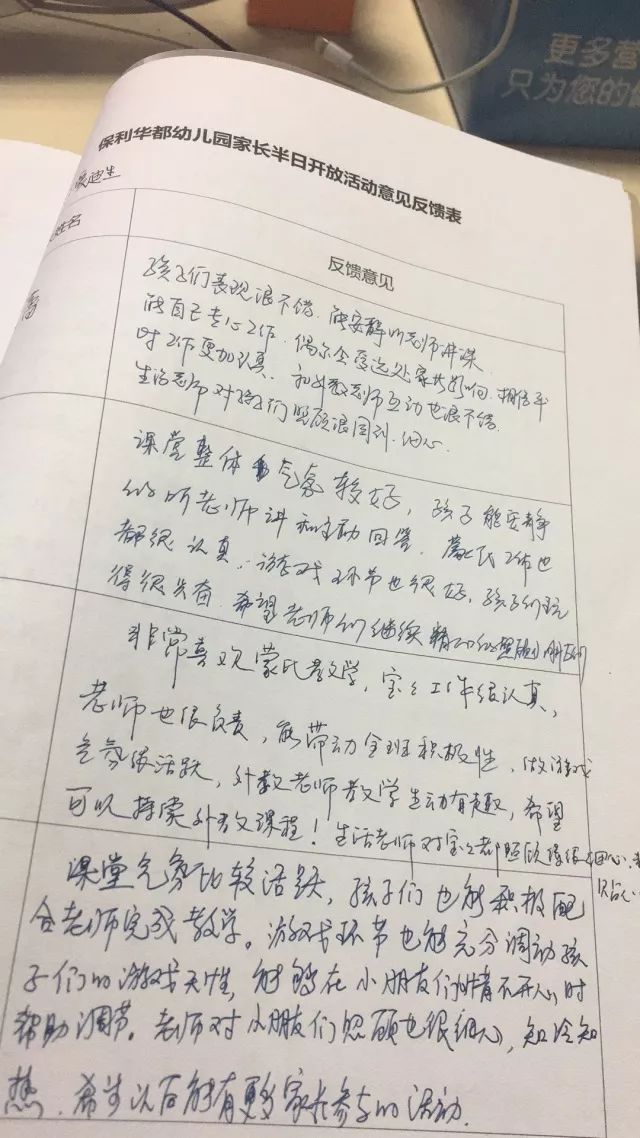 更多营
只为您的健
保利华都幼儿园家长半日开放活动意见反馈表
迪生
姓名
反馈意见
孩子们表现很不错，能安静听老师讲课，
能自己专心工作，偶尔会受远处家长影响，相信平
时工作更加认真，和外教老师互动也很不错，
生活老师对孩子们照顾很周到、细心
课堂整体气氛较好，孩子能安静
的听老师讲和主动回答，蒙氏工作也
都很认真，游戏环节也很好，孩子们玩
得很兴奋，希望老师们继续
非常喜欢蒙氏教学，宝宝工作很认真，
老师也很负责，能带动全班积极性，做游戏
气氛很活跃，外教老师教学生动有趣，希望
可以持续外教课程！生活老师对宝宝都照顾得很细心，
课堂气氛比较活跃，孩子们也能积极配
合老师完成教学。游戏环节也能充分调动孩
子们的游戏天性，能够在小朋友们情绪不开心时
帮助调节。老师对小朋友们照顾也很细心，知冷知
热，希望以后能有更多家长参与的活动.